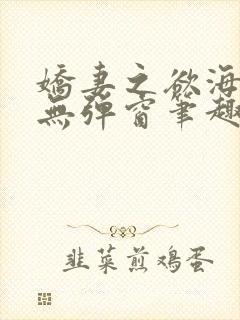 嬌妻之欲海
無彈窗筆趣
韭菜煎鸡蛋